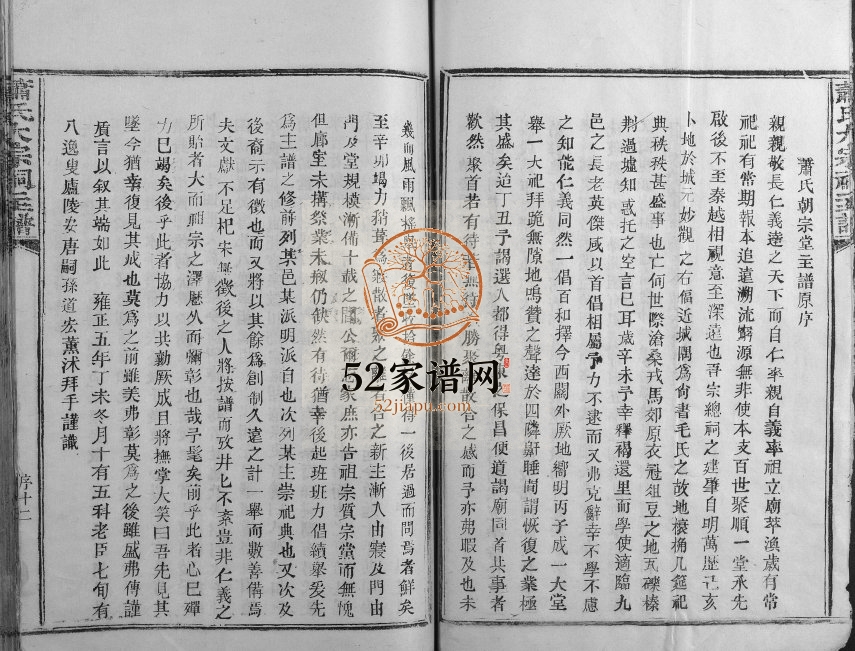 蕭氏大宗祠主譜
蕭氏朝宗堂主譜原序
親親敬長仁義達之天下而自仁率親自義率祖立廟萃渙歲有常
祀祀有常期報本追遠溯流窮源無非使本支百世聚順一堂承先
啟後不至秦越相視意至深遠也吾宗總祠之建肇自明萬歷己亥
卜地於城元妙觀之右偪近城隅為尚書毛氏之故地榱桷几筵祀
典秩秩甚盛事也亡何世際滄桑戎馬郊原衣冠俎豆之地瓦礫榛
荆過墟知惑托之空言已耳歲辛未予幸釋褐還里而學使適臨九
邑之長老英傑咸以首倡相屬予力不逮而又弗克辭幸不學不慮
之知能仁義同然一倡百和擇今西關外厥地嚮明丙子成一大堂
舉一大祀拜跪無隙地鳴贊之聲達於四隣鼾睡閧謂恢復之業極
其盛矣迨丁丑予謁選入都得保昌便道謁廟同首共事者
歡然聚首若有待勝散合之感而予亦弗暇及也未
幾而風雨飄搖待一後居過而問焉者鮮矣
至辛卯竭力稍葺散者聚之合之新主漸入由寢及門由
門及堂規模漸備十載之間公爾家庶亦告祖宗質宗黨而無愧
但廊室未搆祭業未敷仍缺然有待猶幸後起班班力倡續舉爰先
為主譜之修前列某邑某派明派自也次列某主崇祀典也又次及
後裔示有徵也而又將以其餘為創制久遠之計一舉而數善備焉
夫文獻不足杞宋無徵後之人將按譜而攷井匕不紊豈非仁義之
所貽者大而祖宗之澤歷久而彌彰也哉予髦矣前乎此者心已殫
力已竭矣後乎此者協力以共勷厥成且將撫掌大笑曰吾先見其
墜今猶幸復見其成也莫為之前雖美弗彰莫為之後雖盛弗傳謹
賡言以叙其端如此 雍正五年丁未冬月十有五科老臣七旬有
八逸叟廬陵安唐嗣孫道宏薰沭拜手謹識
序十二
蕭氏大宗祠主譜
52家谱网
52jiapu.com